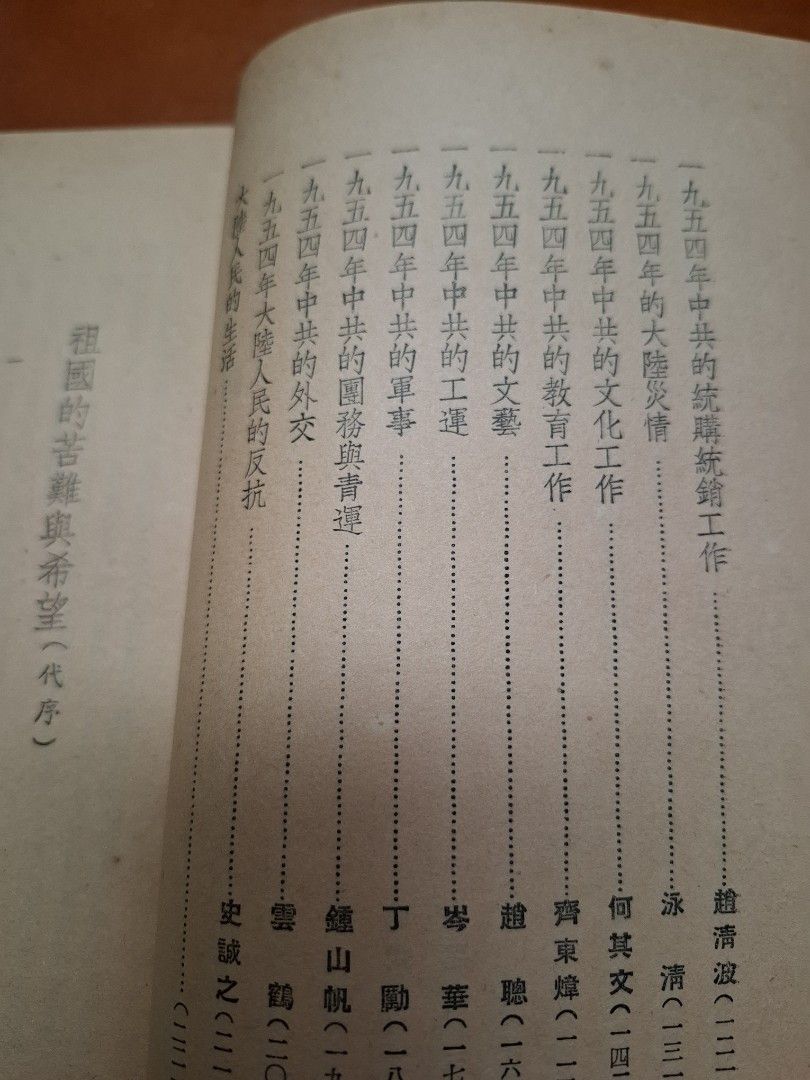 一九五四年中共的統購統銷工作……趙清波(一二一
一九五四年的大陸災情……泳 清(一三一
一九五四年中共的文化工作……何其文(一四二
一九五四年中共的教育工作……齊東煒(一
一九五四年中共的文藝……趙 聰(一六
一九五四年中共的工運……岑 華(一七
一九五四年中共的軍事……丁 勵(一八
一九五四年中共的團務與青運……鍾山帆(一九
一九五四年中共的外交……雲 鶴(二〇
一九五四年大陸人民的反抗……史誠之(二一
大陸人民的生活……(二二
祖國的苦難與希望(代序)
一